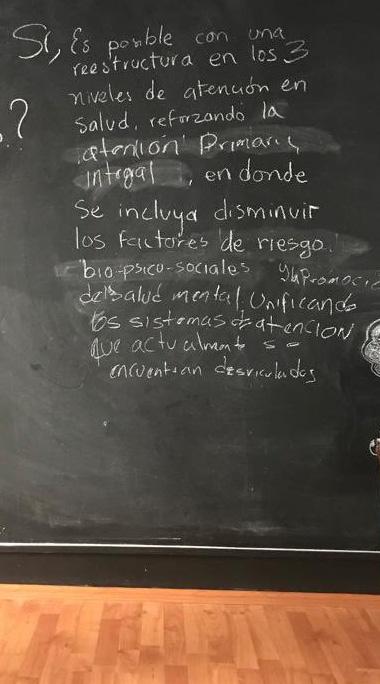 Sí, Es posible con una
reestructura en los 3
niveles de atención en
?
salud, reforzando la
atención Primaria
integral, en donde
se incluya disminuir
los factores de riesgo.
bio-psico-sociales y la Promoció
de salud mental, Unificando
los sistemas de atENCION
que actualmente se
encuentran desviculados